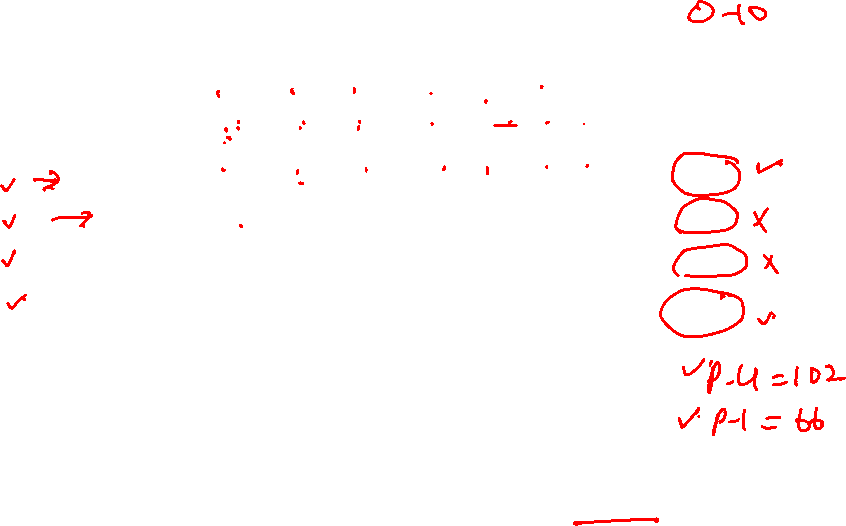 0-10
✓ →
✓
✓ →
X
✓
X
✓
✓
✓ P-4 = 102
✓ P-1 = 66